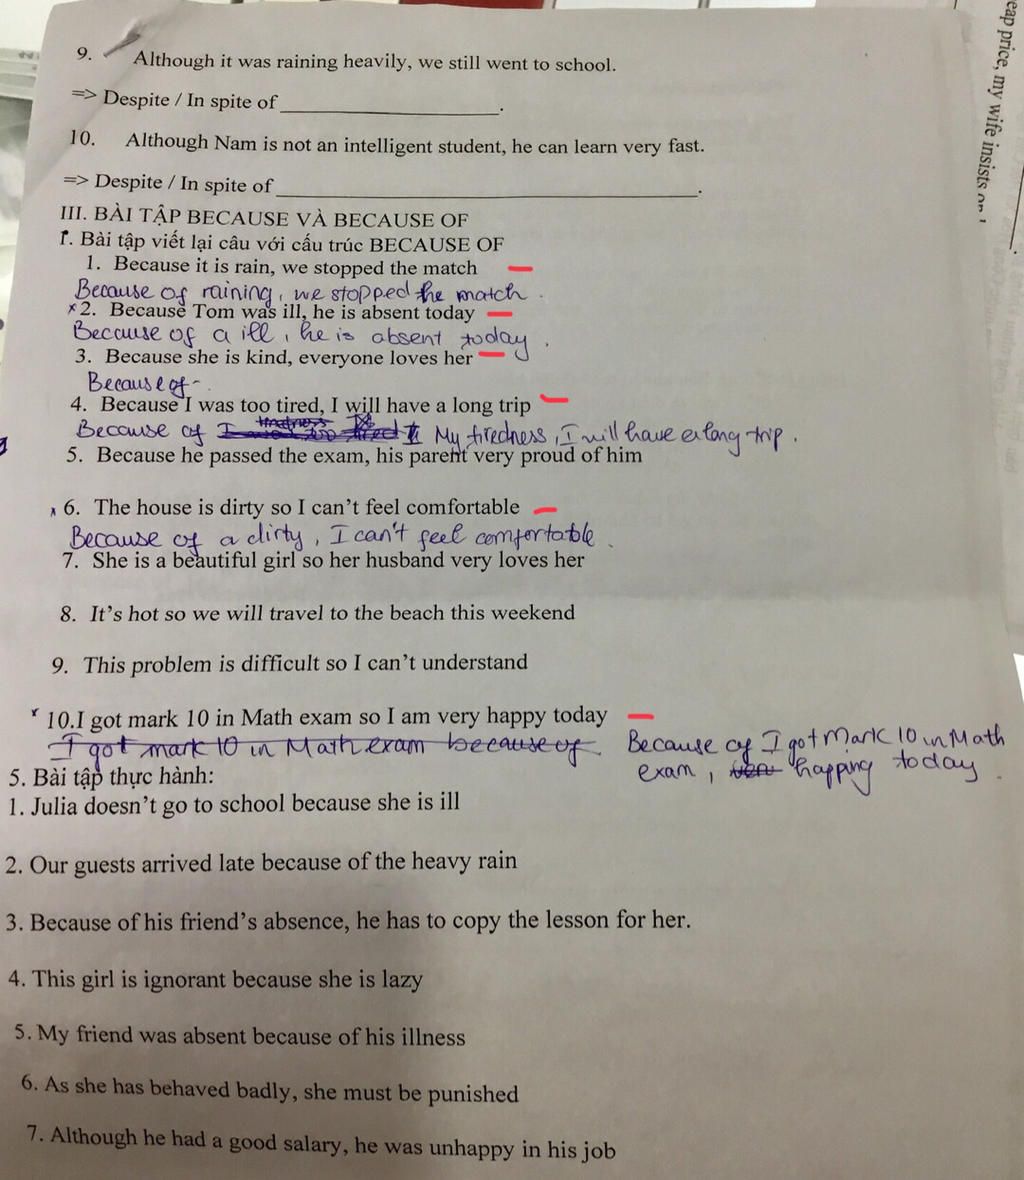 eap price, my wife insists on
9. Although it was raining heavily, we still went to school.
=> Despite / In spite of ____________________.
10. Although Nam is not an intelligent student, he can learn very fast.
=> Despite / In spite of ______________________________________.
III. BÀI TẬP BECAUSE VÀ BECAUSE OF
1. Bài tập viết lại câu với cấu trúc BECAUSE OF
1. Because it is rain, we stopped the match
Because of raining, we stopped the match.
x 2. Because Tom was ill, he is absent today
Because of a ill, he is absent today.
3. Because she is kind, everyone loves her
Because of
4. Because I was too tired, I will have a long trip
Because of My tiredness, I will have a long trip.
5. Because he passed the exam, his parent very proud of him
6. The house is dirty so I can't feel comfortable
Because of a dirty, I can't feel comfortable.
7. She is a beautiful girl so her husband very loves her
8. It's hot so we will travel to the beach this weekend
9. This problem is difficult so I can't understand
x 10.I got mark 10 in Math exam so I am very happy today
I got mark 10 in Math exam because of. Because of I got Mark 10 in Math
exam, happing today.
5. Bài tập thực hành:
1. Julia doesn't go to school because she is ill
2. Our guests arrived late because of the heavy rain
3. Because of his friend's absence, he has to copy the lesson for her.
4. This girl is ignorant because she is lazy
5. My friend was absent because of his illness
6. As she has behaved badly, she must be punished
7. Although he had a good salary, he was unhappy in his job